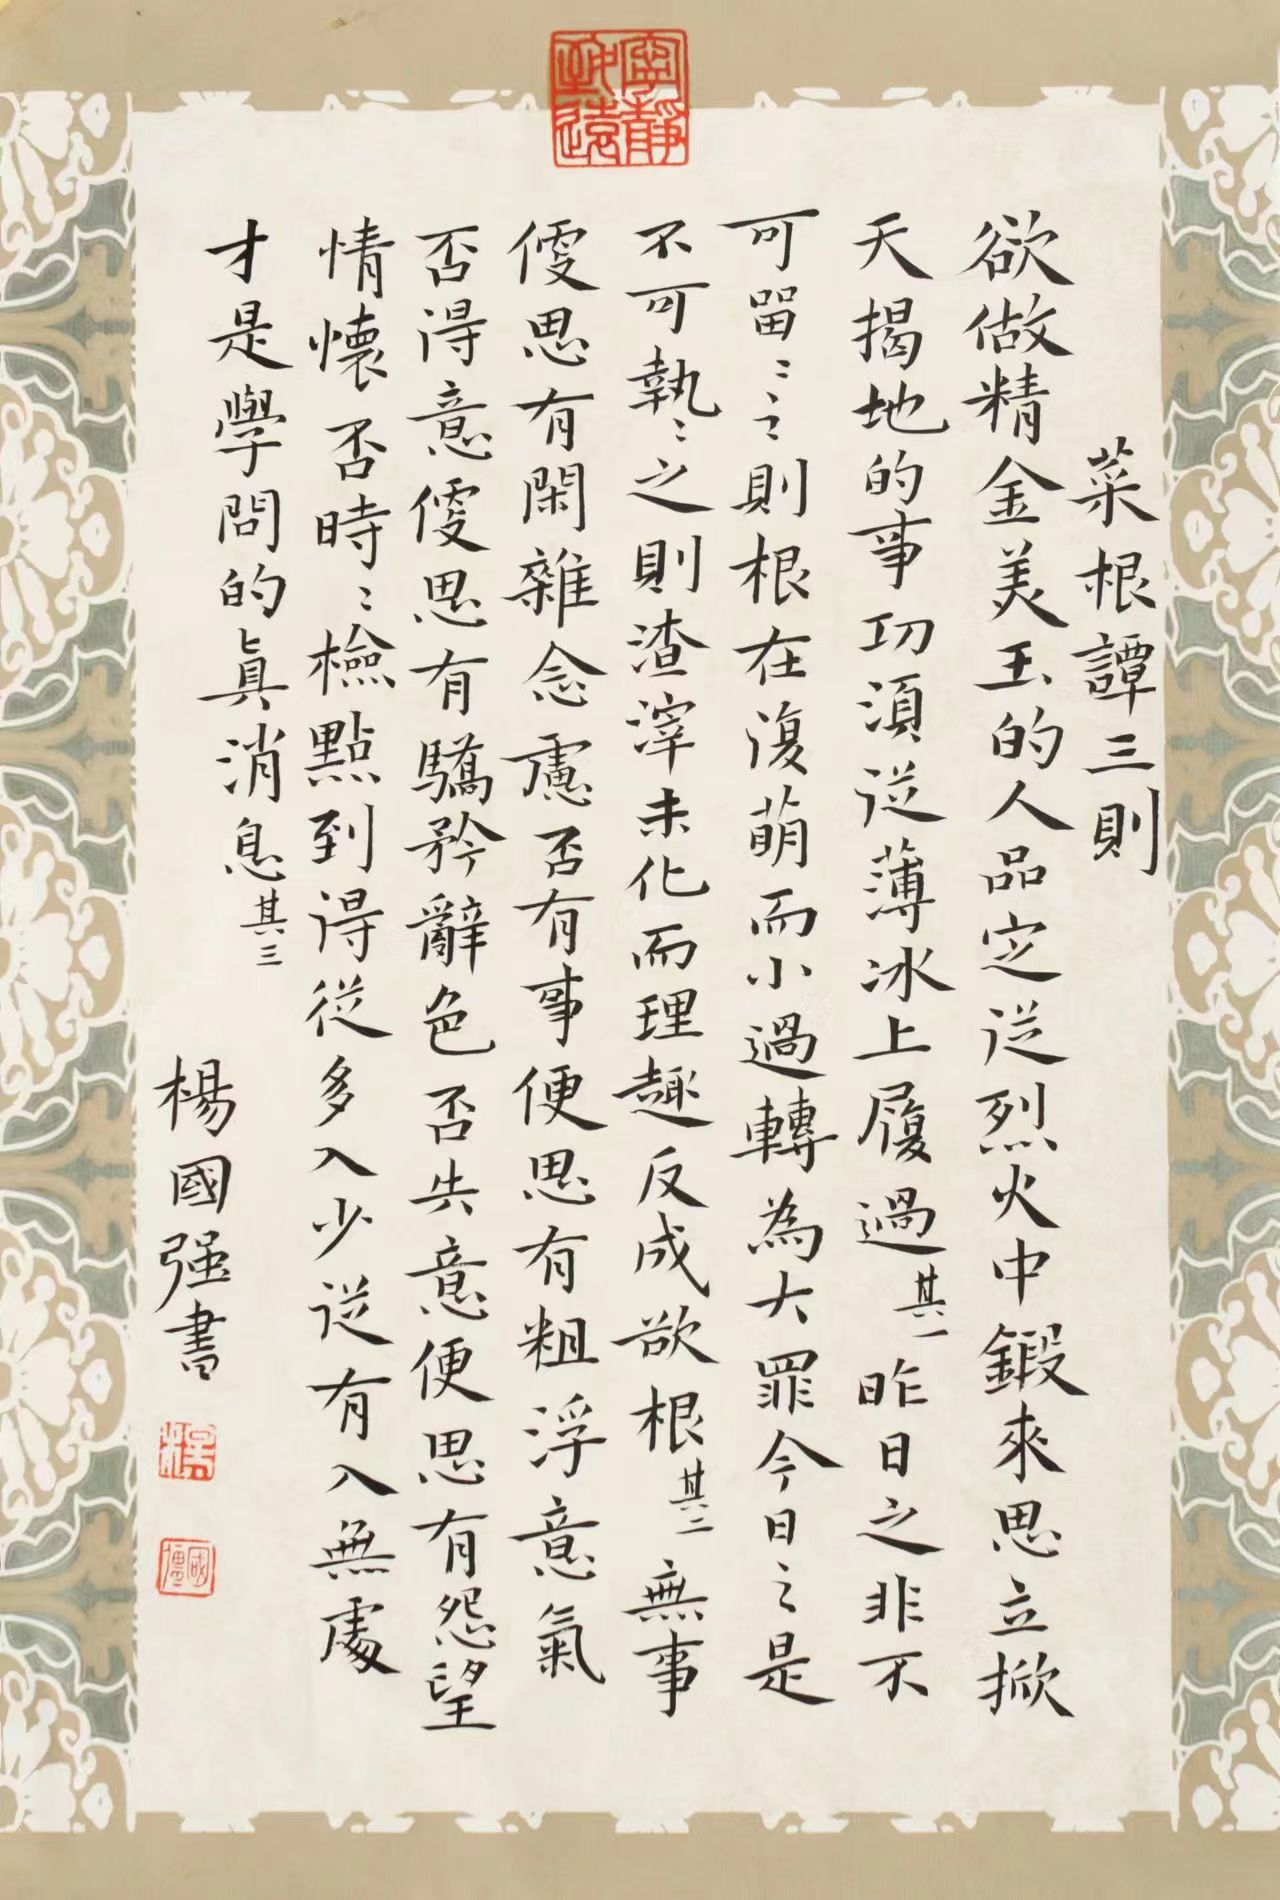 寧靜致遠
菜根譚三則
欲做精金美玉的人品定從烈火中鍛來思立掀
天揭地的事功須從薄冰上履過其一昨日之非不
可留〻之則根在復萌而小過轉為大罪今日之是
不可執〻之則渣滓未化而理趣反成欲根其二無事
便思有閑雜念慮否有事便思有粗浮意氣
否得意便思有驕矜辭色否失意便思有怨望
情懷否時〻檢點到得從多入少從有入無處
才是學問的眞消息其三
楊國强書
楊